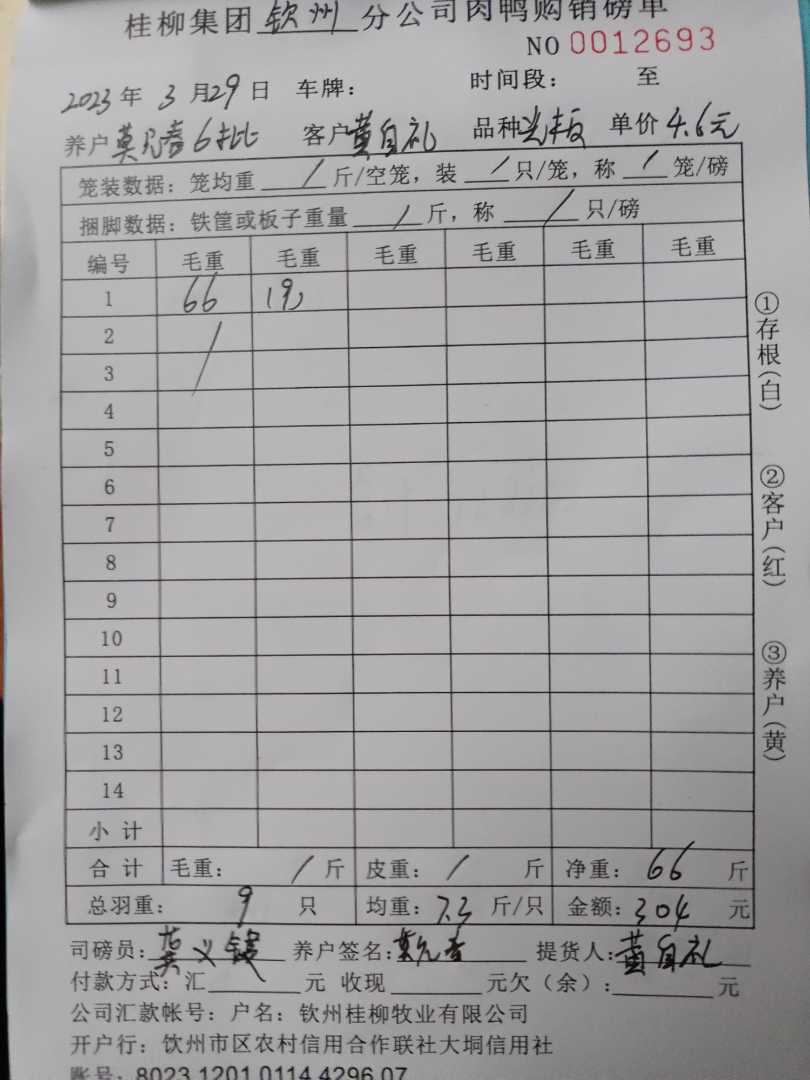 桂柳集团钦州分公司肉鸭购销磅单
NO 0012693
2023年3月29日 车牌： 时间段： 至
养户 6批 客户黄自礼 品种光板 单价4.6元
笼装数据：笼均重 / 斤/空笼，装 / 只/笼，称 / 笼/磅
捆脚数据：铁筐或板子重量 / 斤，称 / 只/磅
编号 毛重 毛重 毛重 毛重 毛重 毛重
1 66
2 /
3
4
5
6
7
8
9
10
11
12
13
14
小计
合计 毛重： / 斤 皮重： / 斤 净重：66 斤
总羽重： 9 只 均重：7.3 斤/只 金额：304 元
司磅员： 养户签名： 提货人：黄自礼
付款方式：汇 元 收现 元欠（余）： 元
公司汇款帐号：户名：钦州桂柳牧业有限公司
开户行：钦州市区农村信用合作联社大垌信用社
账号：8023 1201 0114 4296 07
①存根（白）
②客户（红）
③养户（黄）